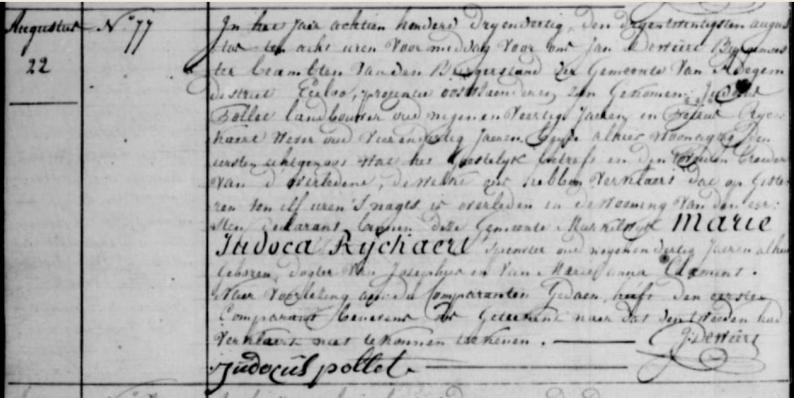 Augustus N° 77 In het Jaer achtien honderd dryendertig, den dryentwintigsten augus
22 tus ten acht uren voor middag voor ons Jan Deweert Burgemees
ter beambten van den Burgerstand der Gemeente van Adegem
district Eecloo, provintie oostvlaenderen, zyn gekomen Judocus
Pollet landbouwer oud negenenveertig Jaeren en Ryc
kaert Wever oud Jaeren beyde alhier woonagtig den
eersten wat het betreft en den tweeden broeder
van d'overledene, dewelke ons hebben verklaert dat op giste
ren ten elf uren 's nagts is overleden in de wooning van den eer
sten declarant binnen deze Gemeente Marie
Judoca Rijckaert spinster oud negenendertig Jaeren alhier
geboren, dogter van Josephus en van Marie anna Clement.
Naer voorlezing aen de Comparanten gedaen, heeft den eersten
Comparant benevens ons geteekent naer dat den tweeden had
verklaert niet te konnen teekenen. J: DeWeert
Judocus pollet